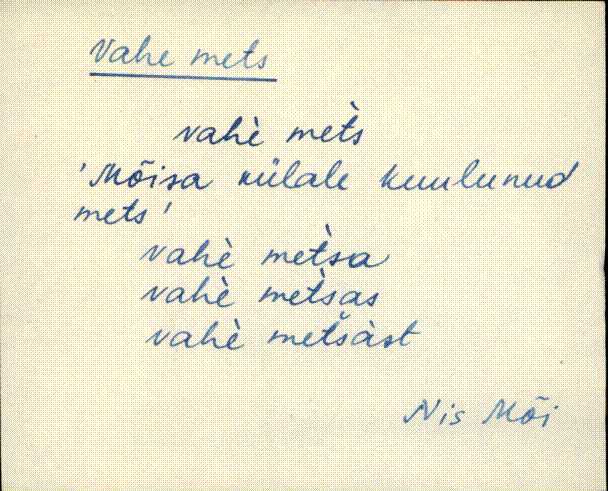 Vahe mets
vahè met̀s
'Mõisa külale kuulunud
mets'
vahè met̀sa
vahè met̀sas
vahè metšàst
Nis Mõi